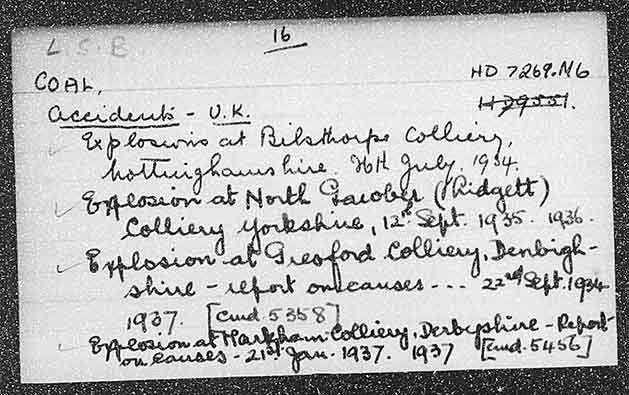 16
L S B
COAL,
HD 7269.M6
Accidents - U.K.
HD9551.
Explosions at Bilsthorpe Colliery,
Nottinghamshire. 26th July, 1934.
Explosion at North Gawber (Lidgett)
Colliery Yorkshire, 12th Sept. 1935. 1936.
Explosion at Gresford Colliery, Denbigh-
shire - report on causes --- 22nd Sept. 1934
1937. [Cmd. 5358]
Explosion at Markham Colliery, Derbyshire - Report
on causes - 21st Jan. 1937. 1937 [Cmd. 5456]